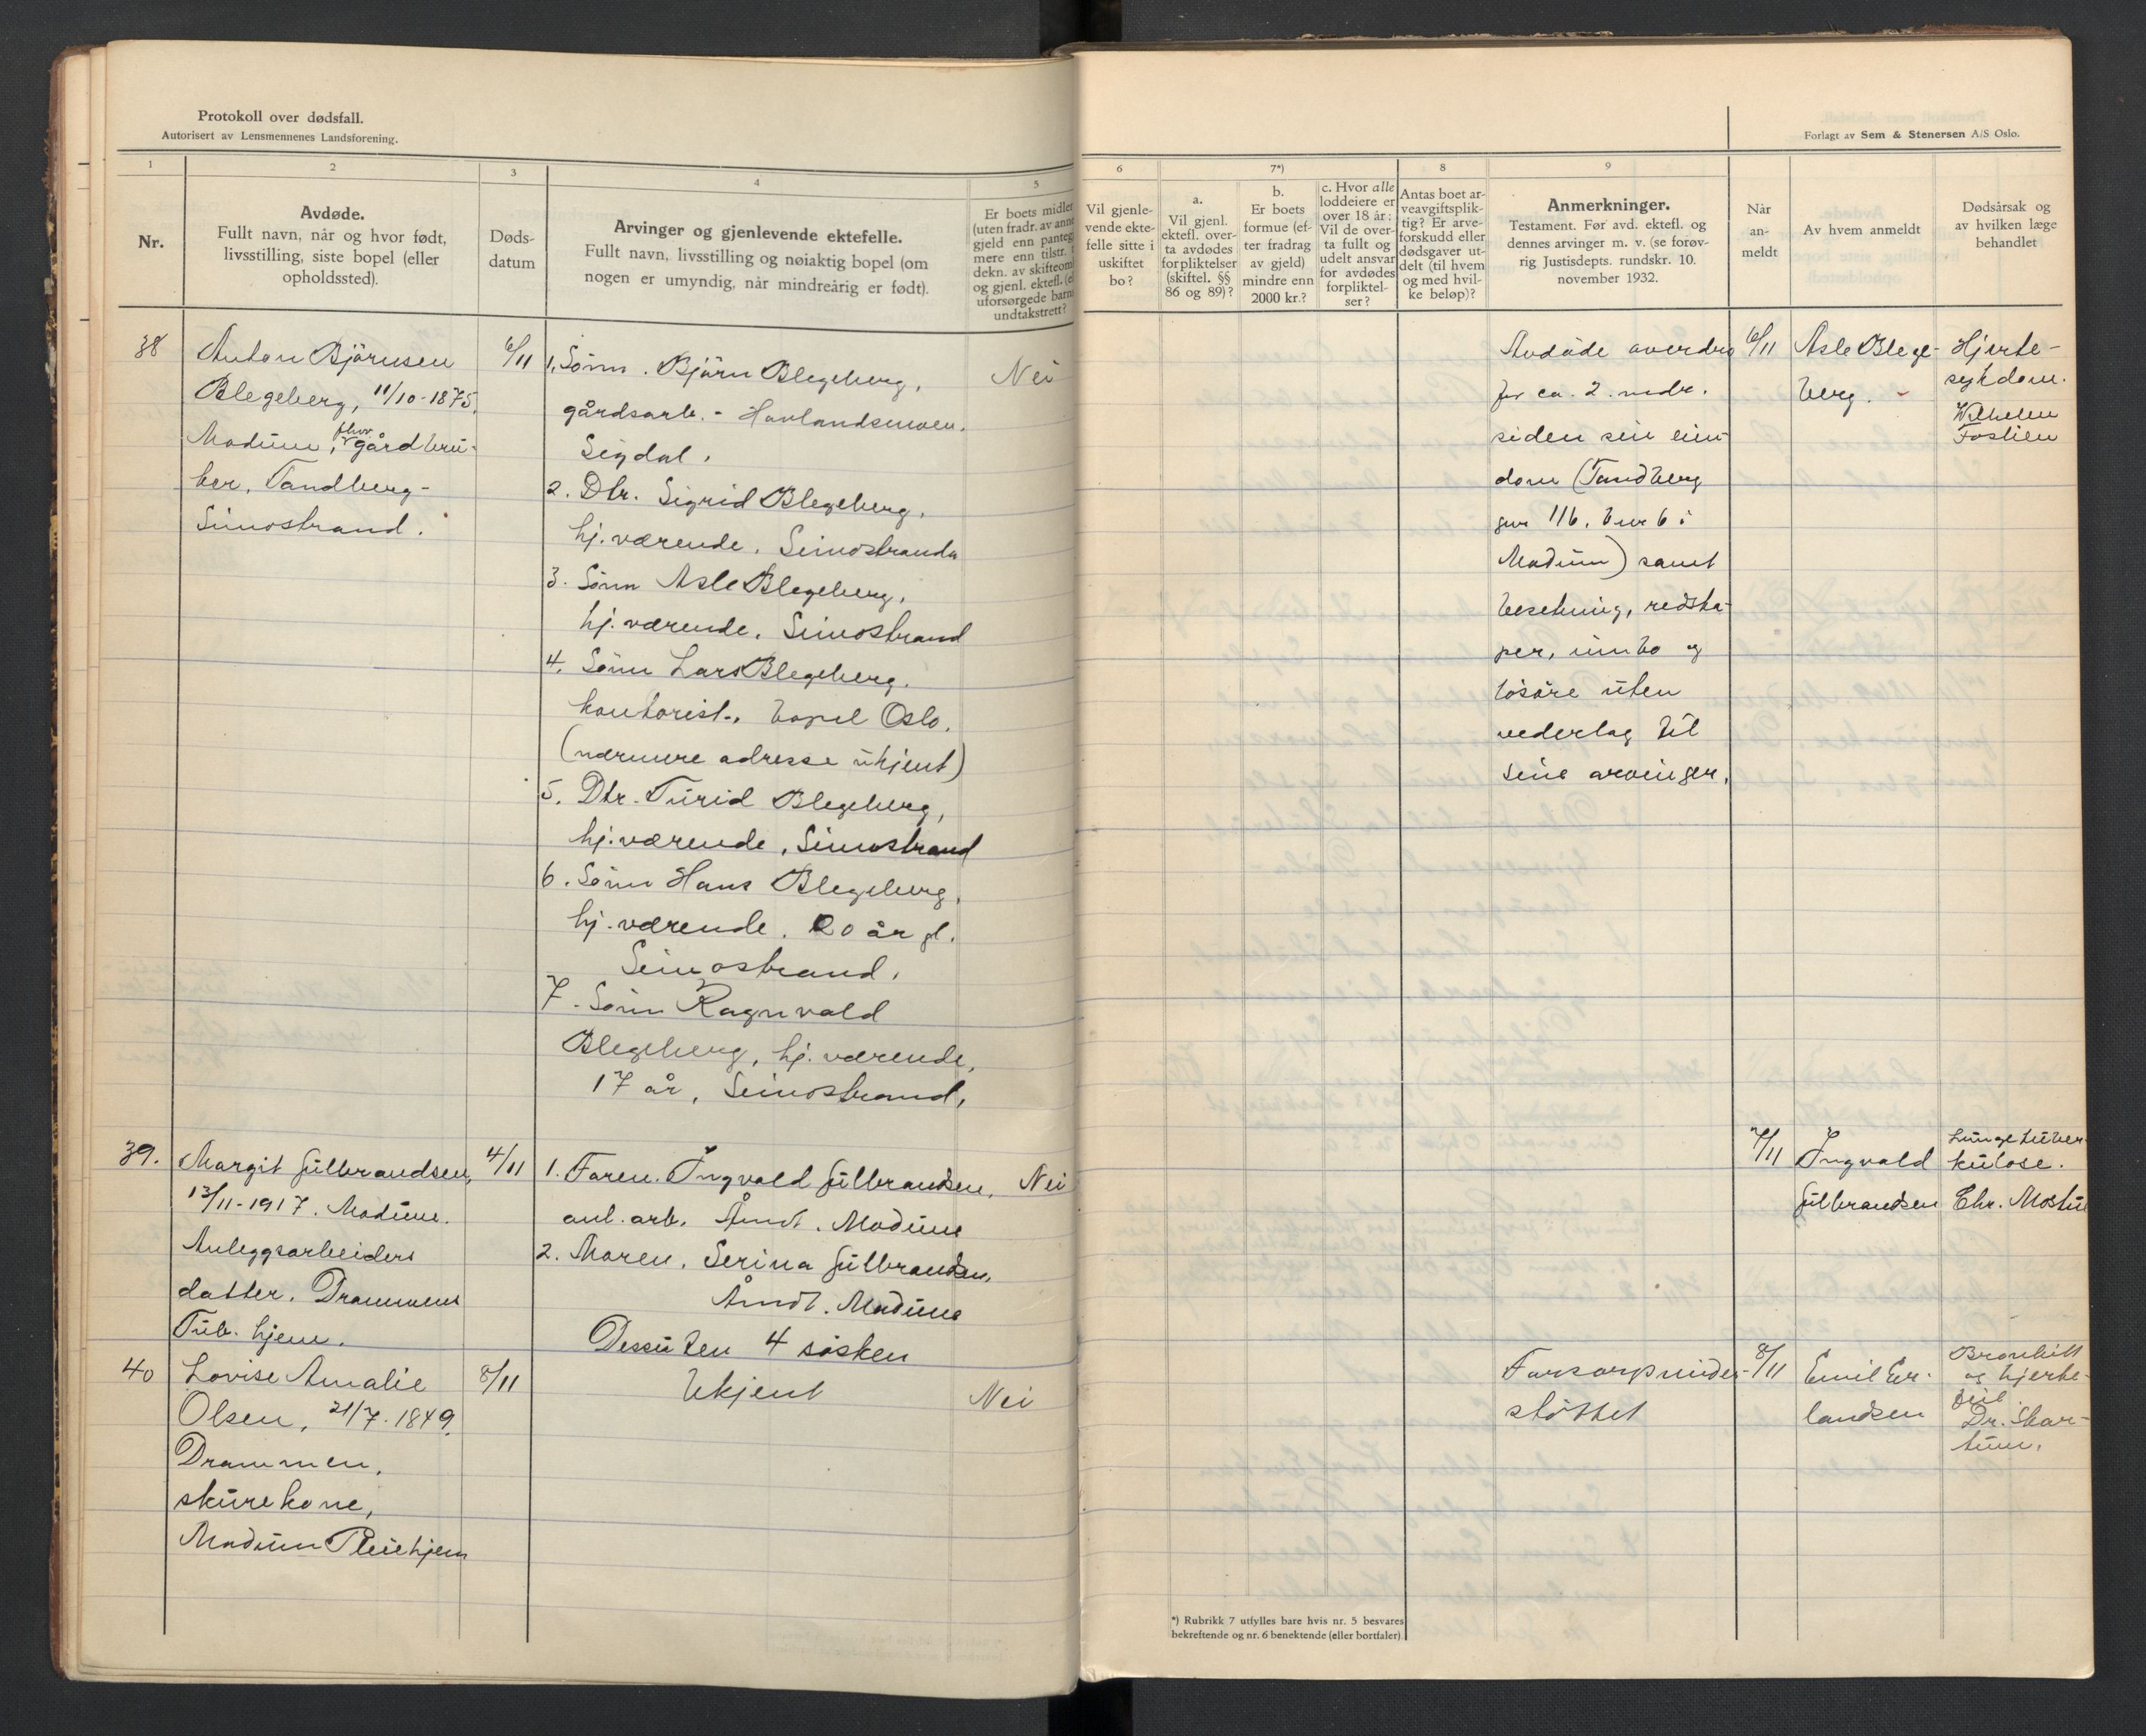 Protokoll over dødsfall.
Autorisert av Lensmennenes Landsforening.
1
2
3
4
5
Nr.
Avdøde.
Fullt navn, når og hvor født,
livsstilling, siste bopel (eller
opholdssted).
Døds-
datum
Arvinger og gjenlevende ektefelle.
Fullt navn, livsstilling og nøiaktig bopel (om
nogen er umyndig, når mindreårig er født).
Er boets midler
(uten fradr. av anne
gjeld enn panteg
mere enn tilstr.
dekn. av skifteom
og gjenl. ektefl. (e
uforsørgede barns
undtakstrett?
38
Anton Björnsen
Blegeberg, 11/10-1875,
Modum, fhv. gårdbru-
ker, Tandberg-
Simostrand.
6/11
1. Sönn. Björn Blegeberg,
gårdsarb. - Havlandsmoen.
Sigdal.
2. Dtr. Sigrid Blegeberg,
hj.værende. Simostranda
3. Sönn Asle Blegeberg,
hj.værende. Simostrand
4. Sönn Lars Blegeberg.
kontorist., bopel Oslo.
(nærmere adresse ukjent)
5. Dtr. Turid Blegeberg,
hj.værende, Simostrand
6. Sönn Hans Blegeberg,
hj.værende. 20 år gl.
Simostrand.
7. Sönn Ragnvald
Blegeberg, hj.værende,
17 år, Simostrand.
Nei
39.
Margit Gulbrandsen,
13/11-1917. Modum.
Anleggsarbeiders
datter. Drammens
Tub. hjem.
4/11
1. Faren. Ingvald Gulbrandsen,
anl. arb. Åmot. Modum
2. Moren. Serina Gulbrandsen,
Åmot. Modum
Dessuten 4 søsken
Nei
40
Lovise Amalie
Olsen, 21/7-1849.
Drammen,
skurekone,
Modum Pleiehjem
8/11
Ukjent
Nei
Forlagt av Sem & Stenersen A/S Oslo.
6
7*)
8
9
Vil gjenle-
vende ekte-
felle sitte i
uskiftet
bo?
a.
Vil gjenl.
ektefl. over-
ta avdødes
forpliktelser
(skiftel. §§
86 og 89)?
b.
Er boets
formue (ef-
ter fradrag
av gjeld)
mindre enn
2000 kr.?
c. Hvor alle
loddeiere er
over 18 år:
Vil de over-
ta fullt og
udelt ansvar
for avdødes
forpliktel-
ser?
Antas boet ar-
veavgiftsplik-
tig? Er arve-
forskudd eller
dødsgaver ut-
delt (til hvem
og med hvil-
ke beløp)?
Anmerkninger.
Testament. Før avd. ektefl. og
dennes arvinger m. v. (se forøv-
rig Justisdepts. rundskr. 10.
november 1932.
Når
an-
meldt
Av hvem anmeldt
Dødsårsak og
av hvilken læge
behandlet
Avdöde overdro
for ca. 2. mdr.
siden sin eien-
dom (Tandberg
gnr 116, bnr 6 i
Modum) samt
besetning, redska-
per, innbo og
lösöre uten
vederlag til
sine arvinger.
6/11
Asle Blege-
berg.
Hjerte-
sykdom.
Wilhelm
7/11
Ingvald
Gulbrandsen
Lungetuber-
kulose.
Chr. Mostue
Forsorgsunder-
støttet
8/11
Emil Er-
landsen
Bronkitt
og hjerte-
feil.
Dr. Skar-
tum.
*) Rubrikk 7 utfylles bare hvis nr. 5 besvares
bekreftende og nr. 6 benektende (eller bortfaler).